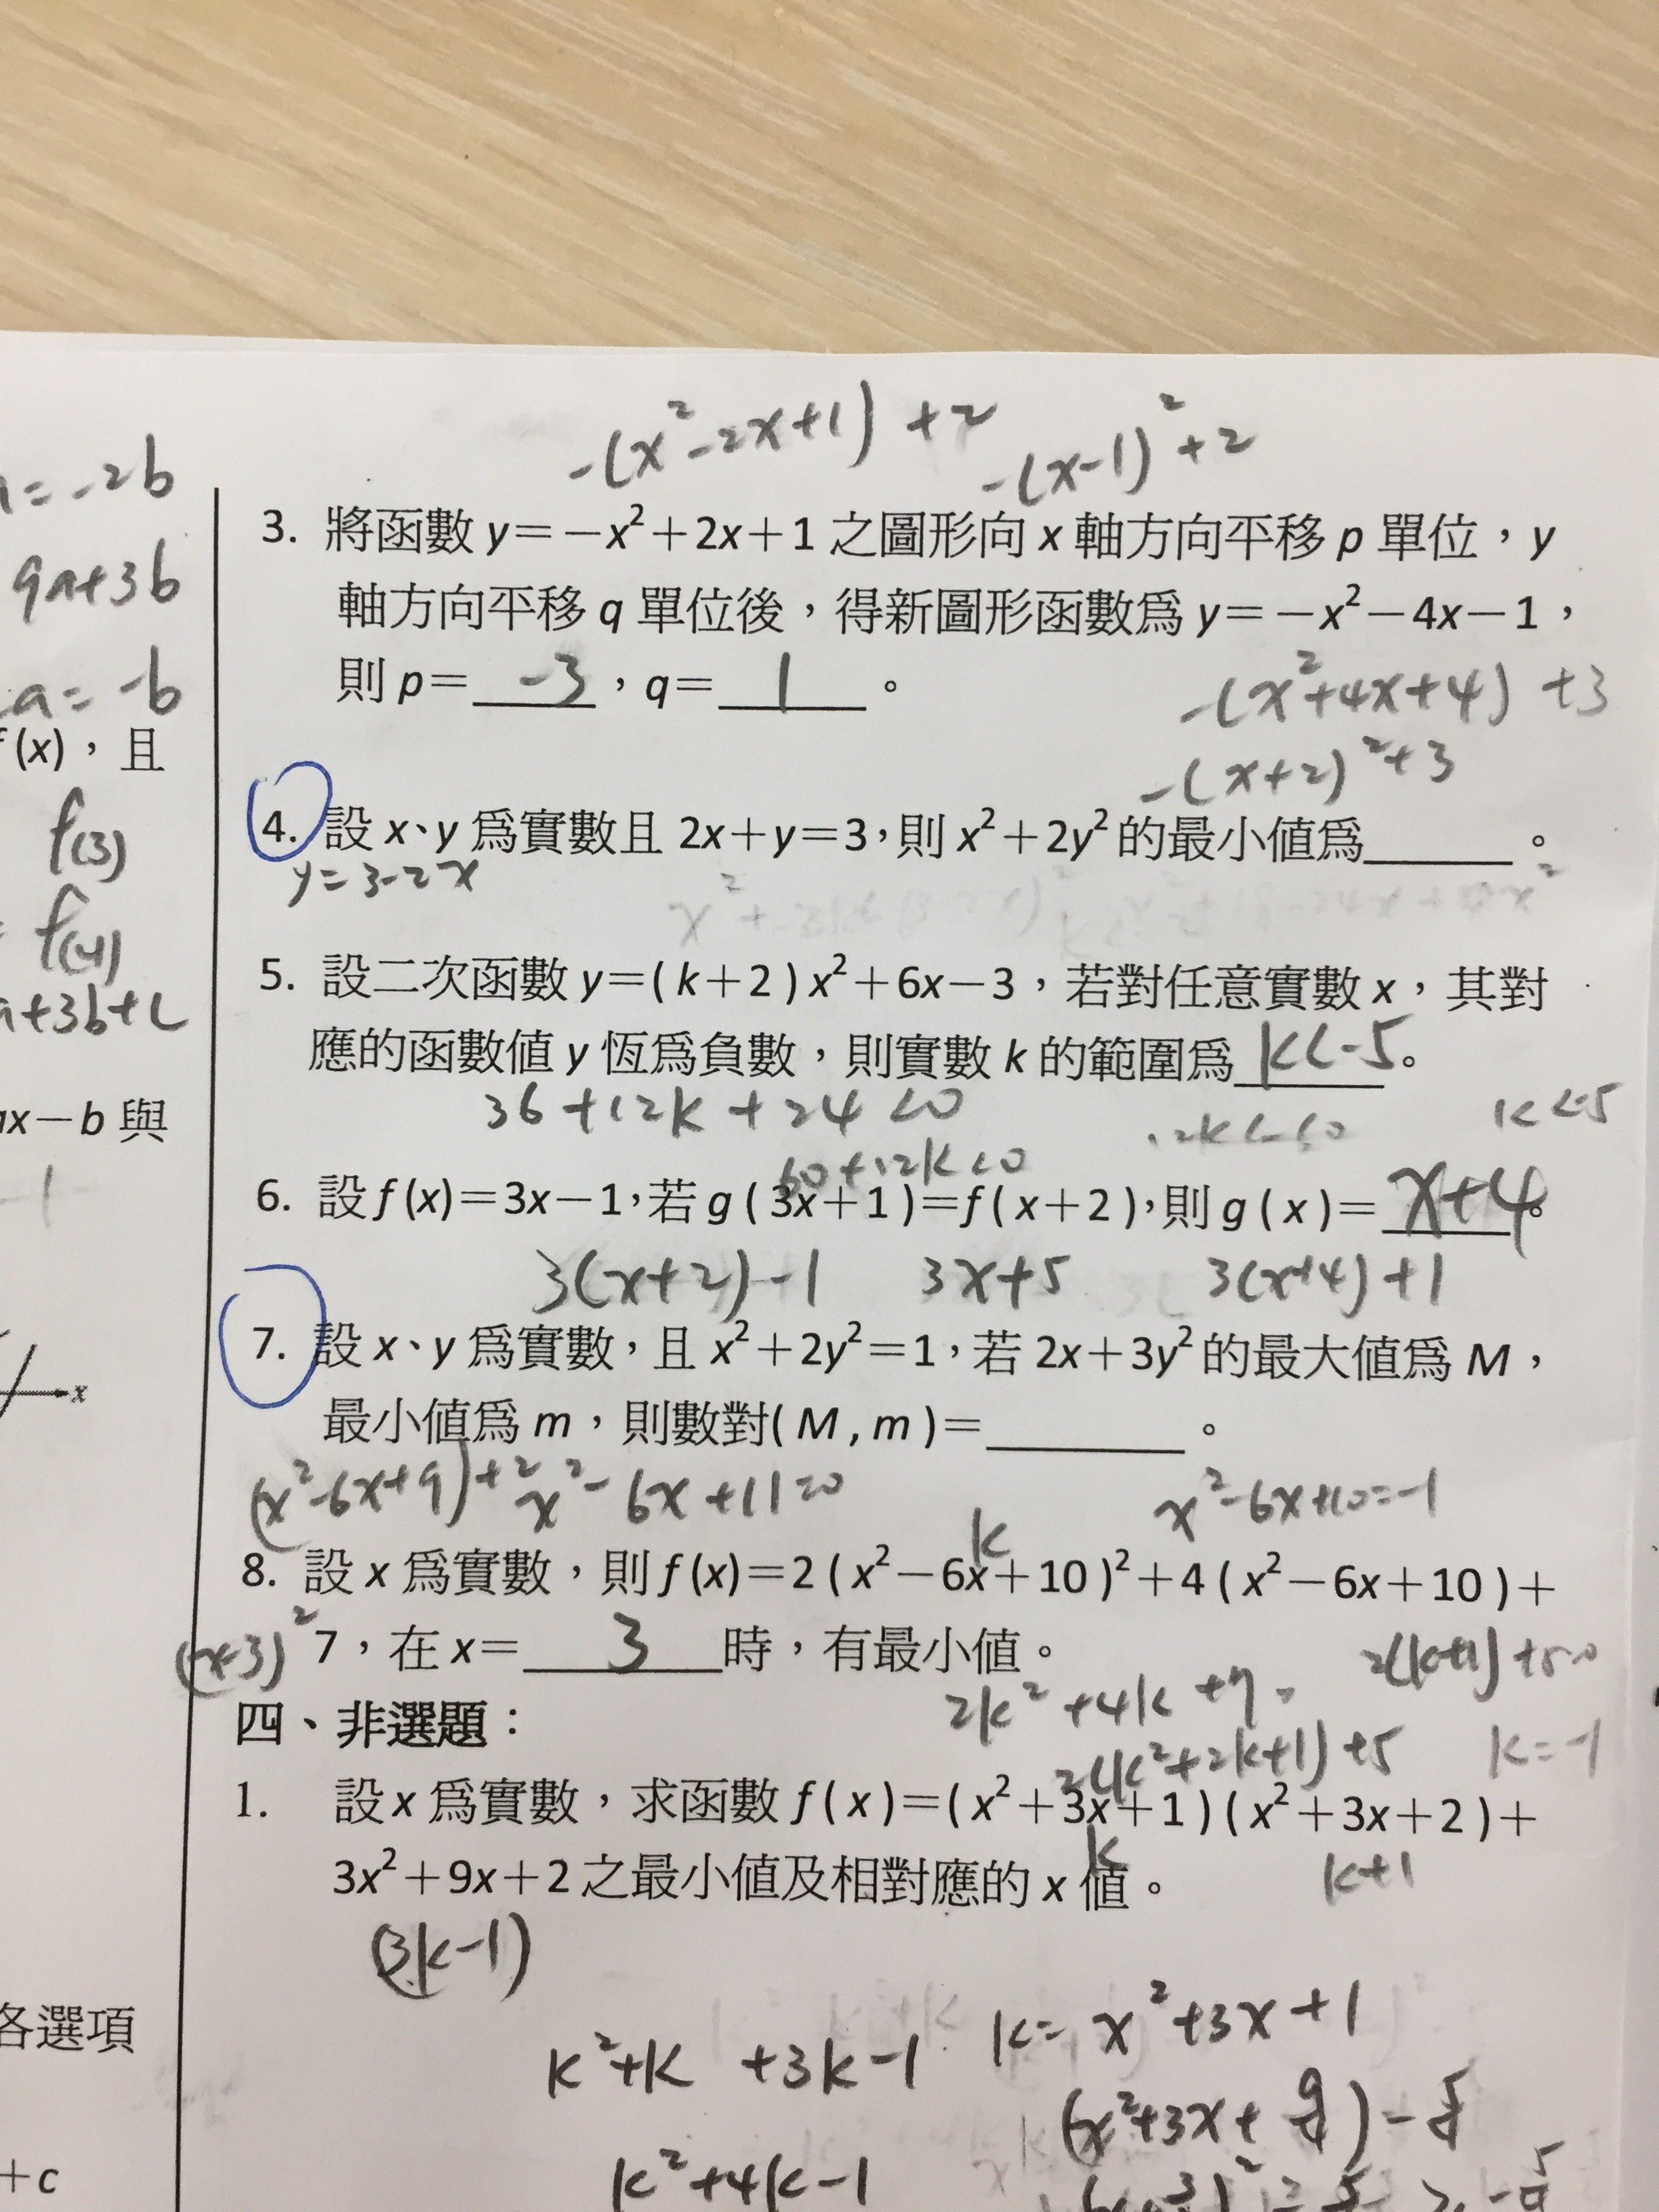 a=-2b
9a+3b
a=-b
f(x)，且
f(3)
f(4)
a+3b+c
ax－b 與
-1
x
各選項
+c
-(x²-2x+1)+2
-(x-1)²+2
3. 將函數 y＝－x²＋2x＋1 之圖形向 x 軸方向平移 p 單位，y
軸方向平移 q 單位後，得新圖形函數為 y＝－x²－4x－1，
則 p＝ -3 ，q＝ 1 。
-(x²+4x+4)+3
-(x+2)²+3
4. 設 x、y 為實數且 2x＋y＝3，則 x²＋2y² 的最小值為______。
y=3-2x
5. 設二次函數 y＝(k＋2)x²＋6x－3，若對任意實數 x，其對
應的函數值 y 恆為負數，則實數 k 的範圍為 k<-5。
36+12k+24<0
12k<-60
k<-5
60+12k<0
6. 設 f(x)＝3x－1，若 g(3x＋1)＝f(x＋2)，則 g(x)＝ x+4。
3(x+2)-1 3x+5 3(x+4)+1
7. 設 x、y 為實數，且 x²＋2y²＝1，若 2x＋3y² 的最大值為 M，
最小值為 m，則數對(M,m)＝________。
(x²-6x+9)+2 x²-6x+11=0 x²-6x+10=-1
k
8. 設 x 為實數，則 f(x)＝2(x²－6x＋10)²＋4(x²－6x＋10)＋
(x-3)² 7，在 x＝ 3 時，有最小值。
2(k+1)+5=0
2k²+4k+7
四、非選題：
2(k²+2k+1)+5 k=-1
1. 設 x 為實數，求函數 f(x)＝(x²＋3x＋1)(x²＋3x＋2)＋
k k+1
3x²＋9x＋2 之最小值及相對應的 x 值。
(3k-1)
k=x²+3x+1
k²+k+3k-1
k²+4k-1